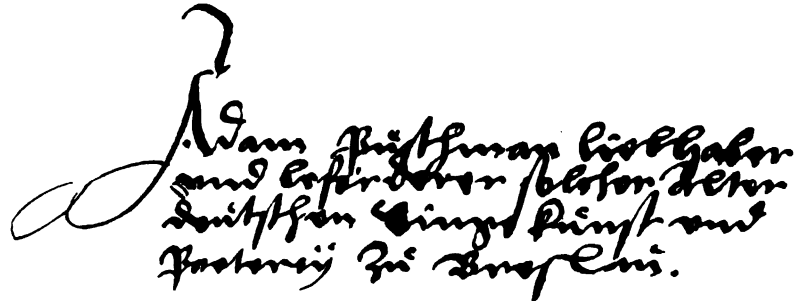 Adam Püschman liebhaber
und beförderer solcher Alter
deütschen Singe Künst und
Poeterëÿ Zü Breslaü.